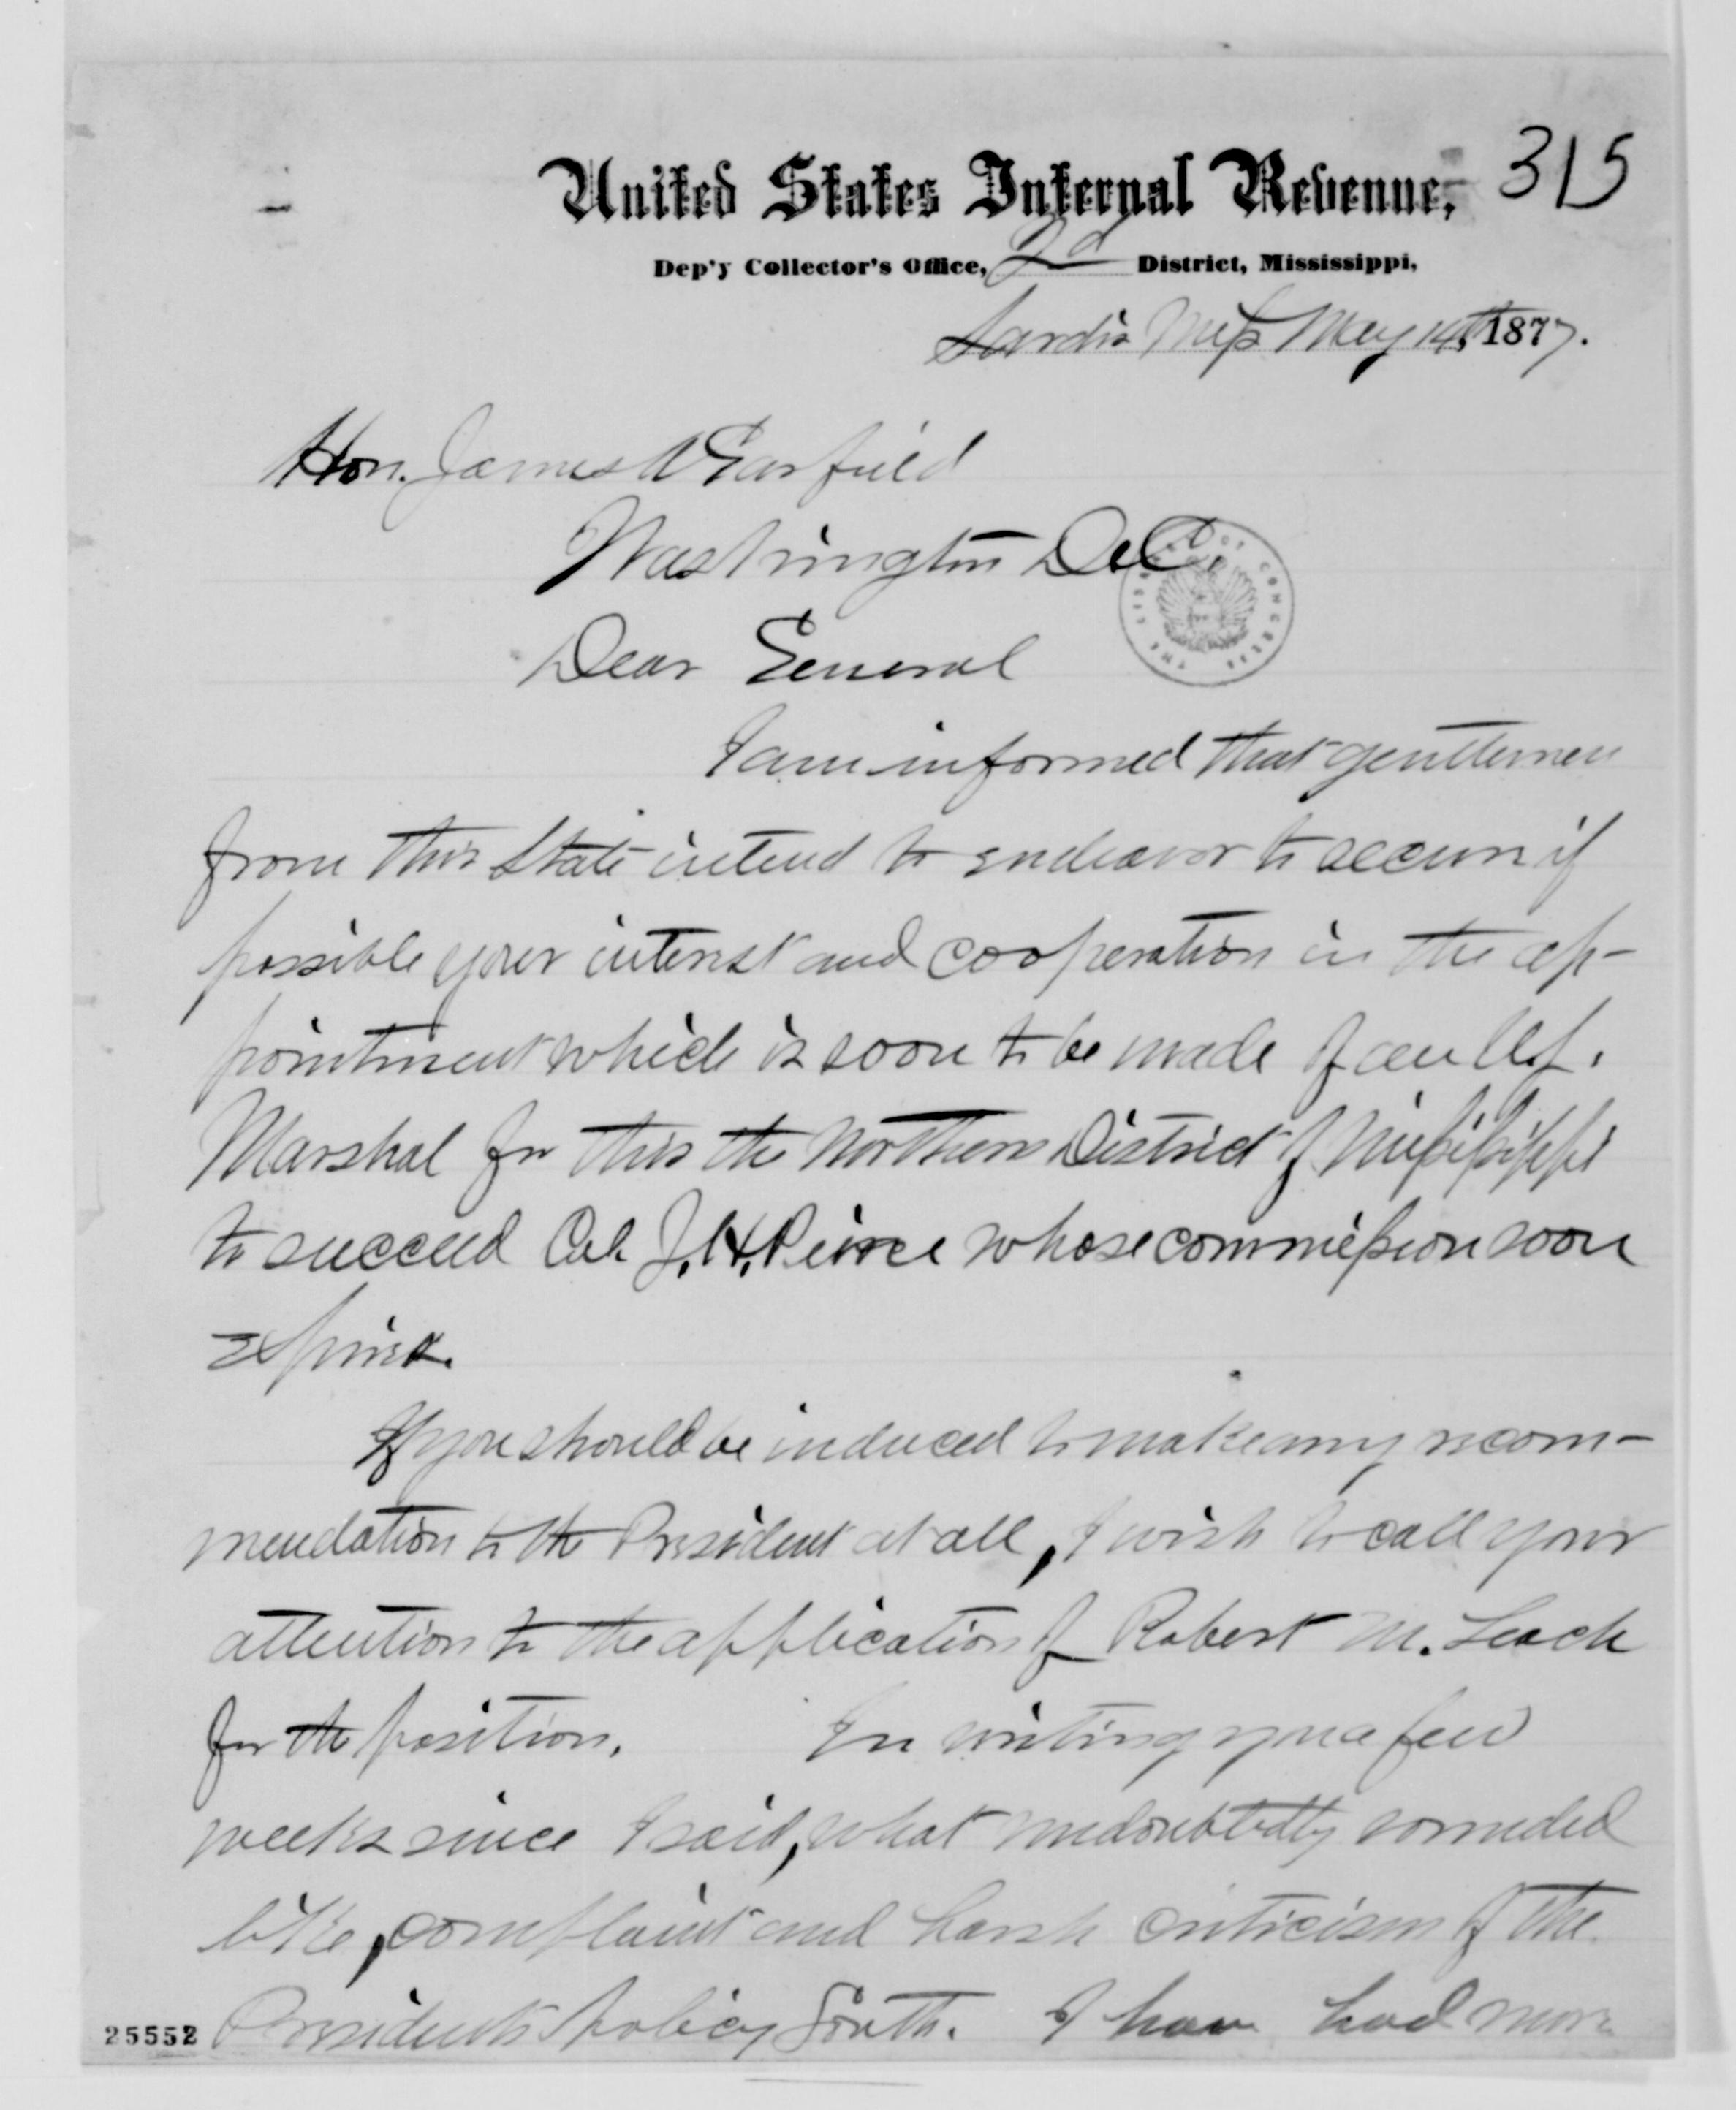 315
United States Internal Revenue,
Dep'y Collector's Office, 2d District, Mississippi,
Sardis Miss May 14th, 1877.
Hon. James A Garfield
Washington D.C.
THE LIBRARY OF CONGRESS
Dear General
I am informed that gentlemen
from this State intend to endeavor to secure if
possible your interest and cooperation in the ap-
pointment which is soon to be made of an U.S.
Marshal for this the Northern District of Mississippi
to succeed Col. J.H. Pierce whose commission soon
expires.
If you should be induced to make any recom-
mendation to the President at all, I wish to call your
attention to the application of Robert M. Leach
for the position. In writing you a few
weeks since I said, what undoubtedly sounded
like, complaint and harsh criticism of the
Presidents policy South. I have had more
25552